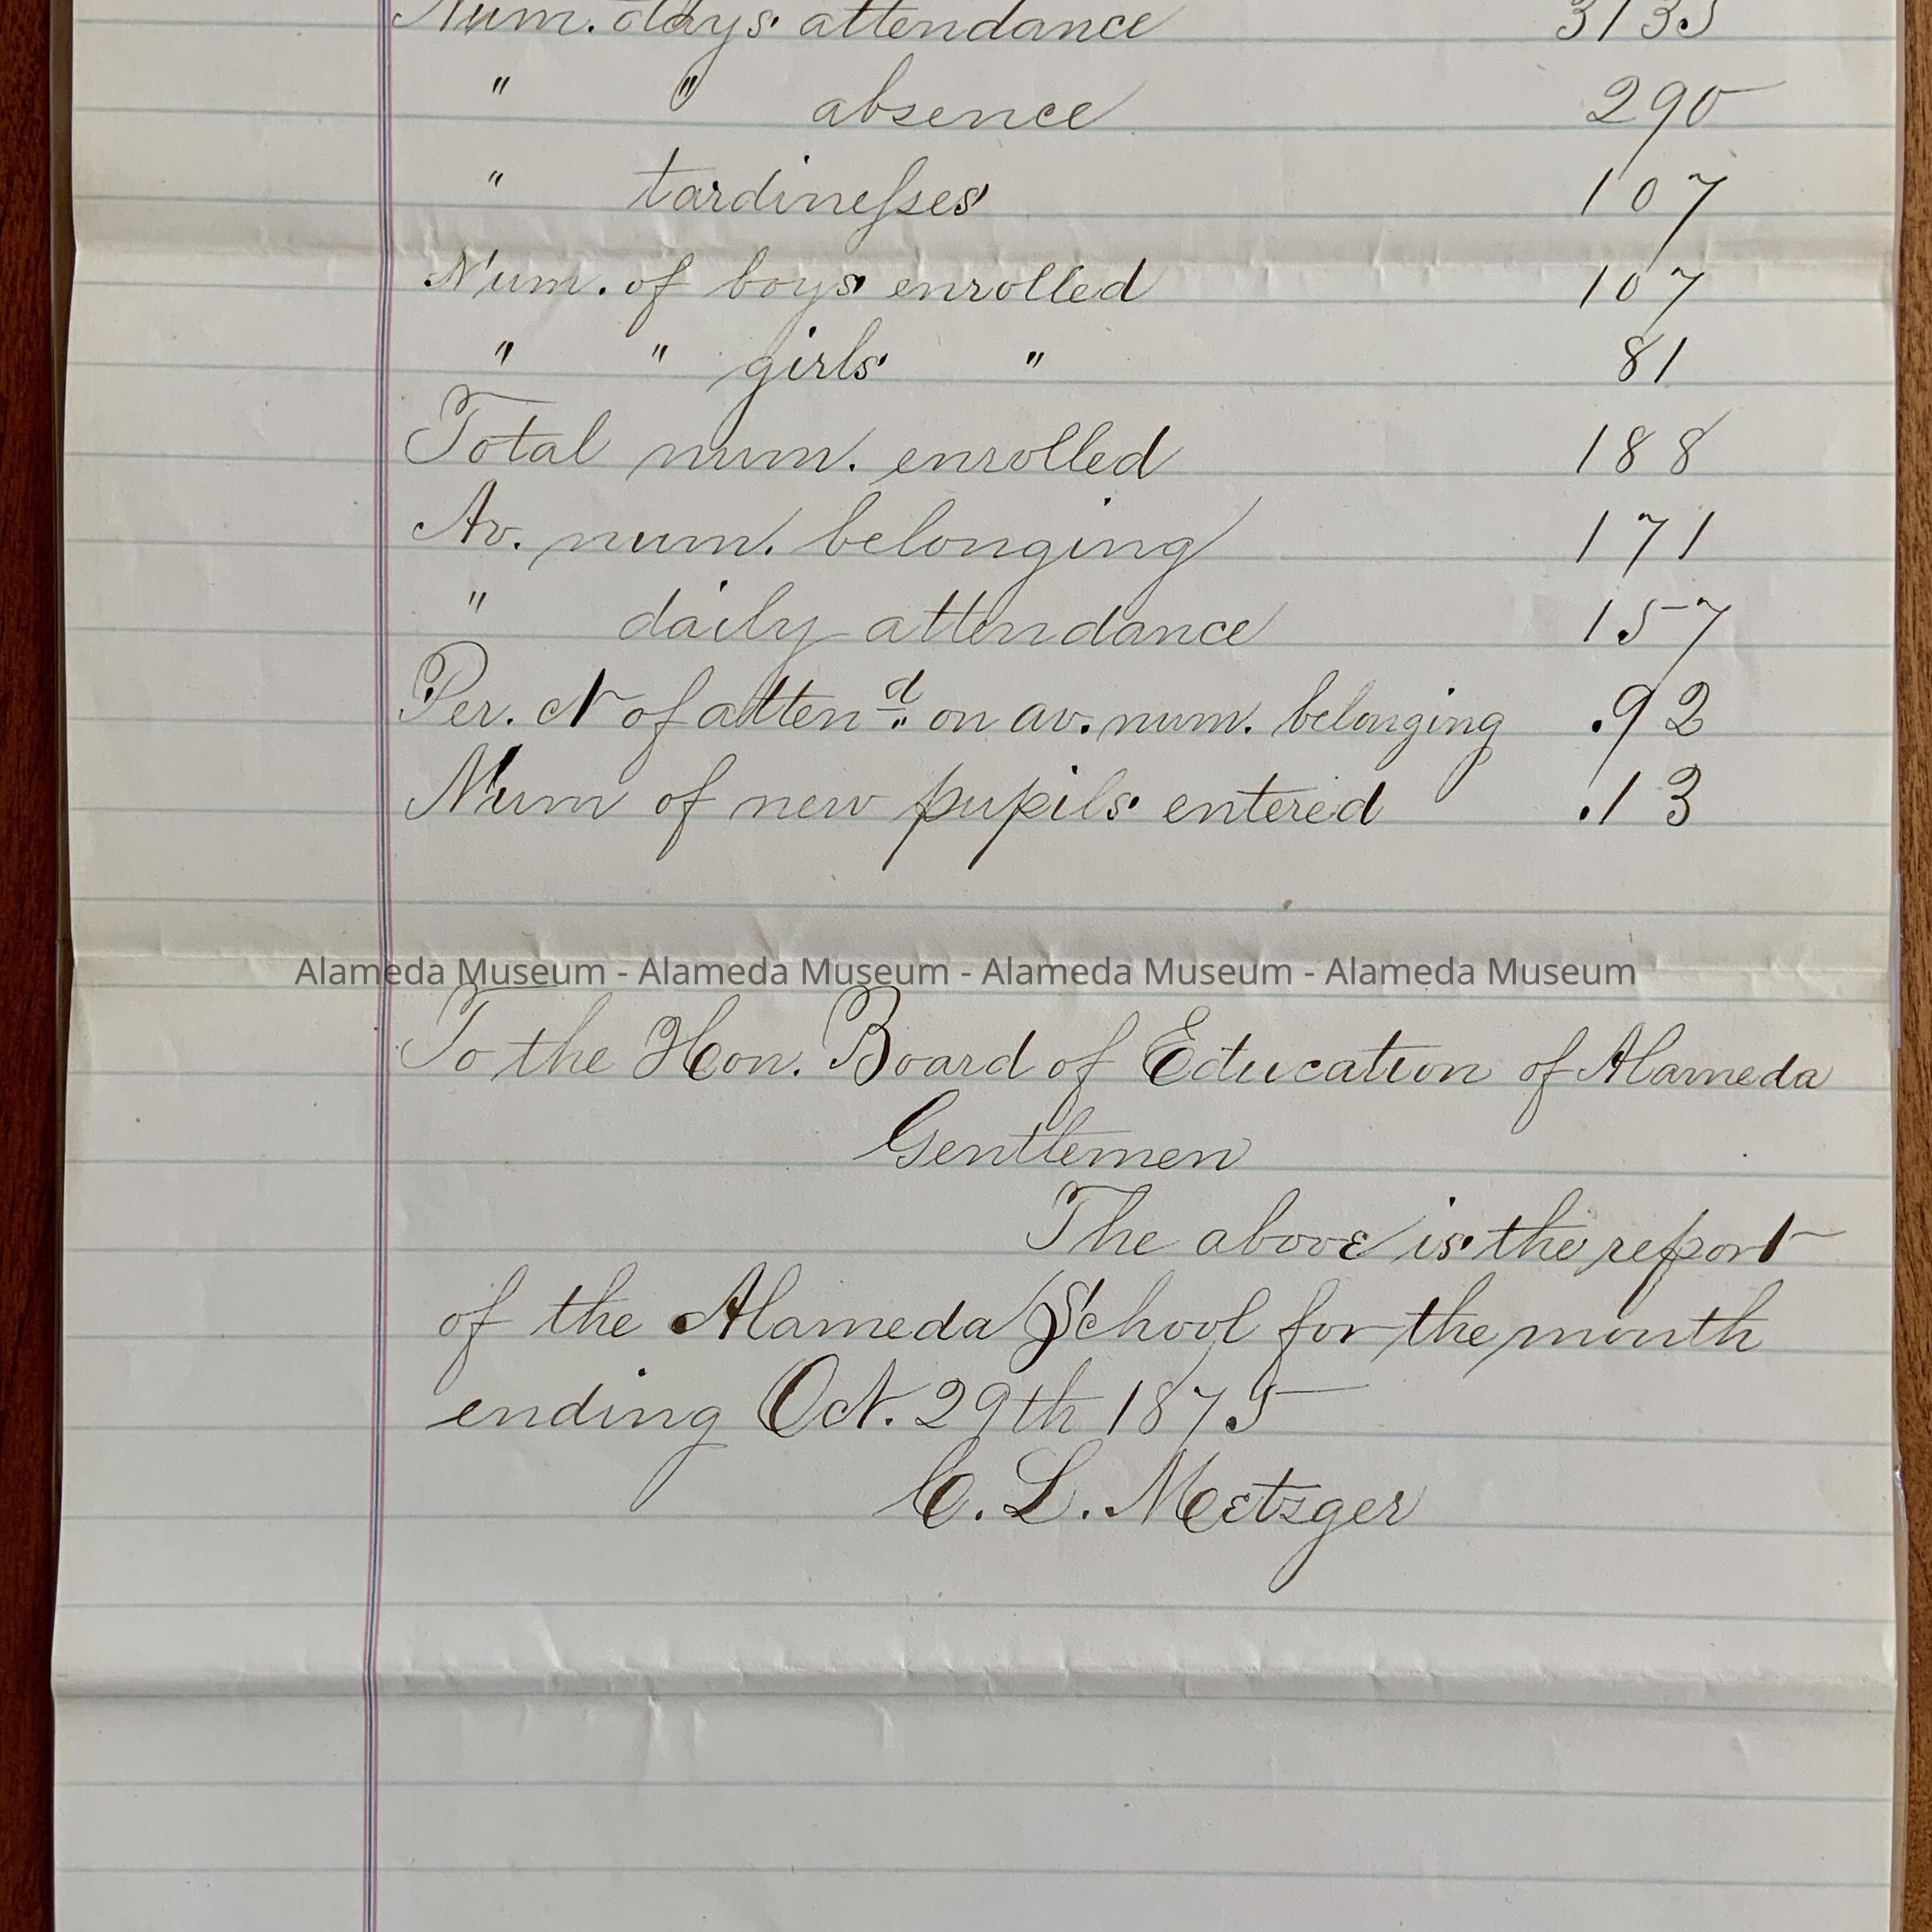 Num. days attendance 3135
" " absence 290
" tardineſses 107
Num. of boys enrolled 107
" " girls " 81
Total num. enrolled 188
Av. num. belonging 171
" daily attendance 157
Per. ct of atten d. on av. num. belonging .92
Num of new pupils entered .13
Alameda Museum - Alameda Museum - Alameda Museum - Alameda Museum
To the Hon. Board of Education of Alameda
Gentlemen
The above is the report
of the Alameda School for the month
ending Oct. 29th 1875
C. L. Metzger